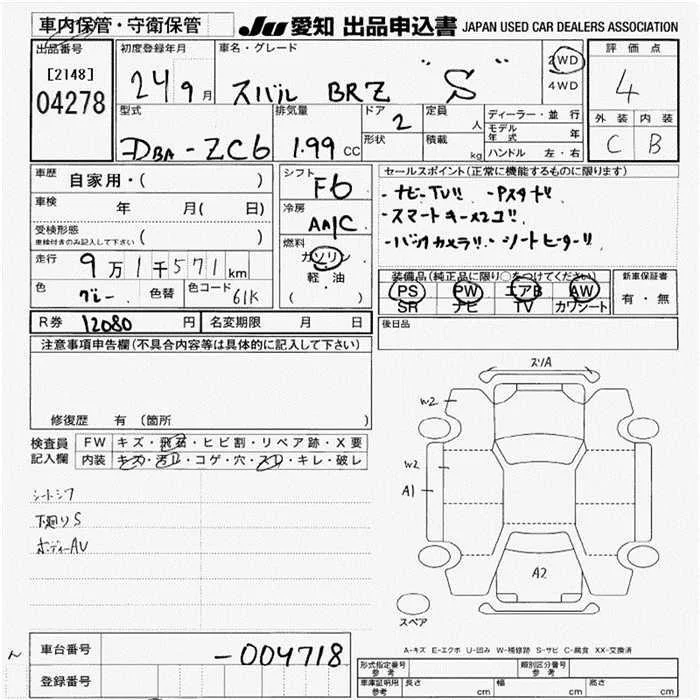 車内保管・守衛保管
JU 愛知 出品申込書 JAPAN USED CAR DEALERS ASSOCIATION
出品番号
[2148]
04278
初度登録年月
24 9月
車名・グレード
スバル BRZ "S"
2WD
4WD
評価点
4
外装 内装
C B
型式
DBA-ZC6
排気量
1.99 CC
ドア
2
形状
定員
人
積載
kg
ディーラー・並行
モデル年式 年
ハンドル 左・右
車歴
自家用・( )
車検 年 月( 日)
受検形態
車検付きのみ記入して下さい ( )
走行
9万1千571km
色
グレー
色替
色コード 61K
シフト
F6
冷房
AA/C
燃料
ガソリン
軽・油
( )
セールスポイント(正常に機能するものに限ります)
・ナビTV!! ・Pスタート!!
・スマートキーx2コ!!
・バックカメラ!!・シートヒーター!!
装備品(純正品に限り○をつけてください)
PS PW エアB AW
SR ナビ TV カワシート
新車保証書
有・無
後日品
R券 12080 円 名変期限 月 日
注意事項申告欄(不具合内容等は具体的に記入して下さい)
修復歴 有 (箇所 )
検査員記入欄
FW キズ・飛石・ヒビ割・リペア跡・X要
内装 キズ・汚レ・コゲ・穴・スレ・キレ・破レ
シートシワ
下廻りS
ボディーAU
ズリA
W2
W2
A1
A2
スペア
A-キズ E-エクボ U-凹み W-補修跡 S-サビ C-腐食 XX-交換済
車台番号
-004718
登録番号
形式指定番号
参考
類別区分番号
参考
車庫証明用
参考
長さ cm 幅 cm 高さ cm